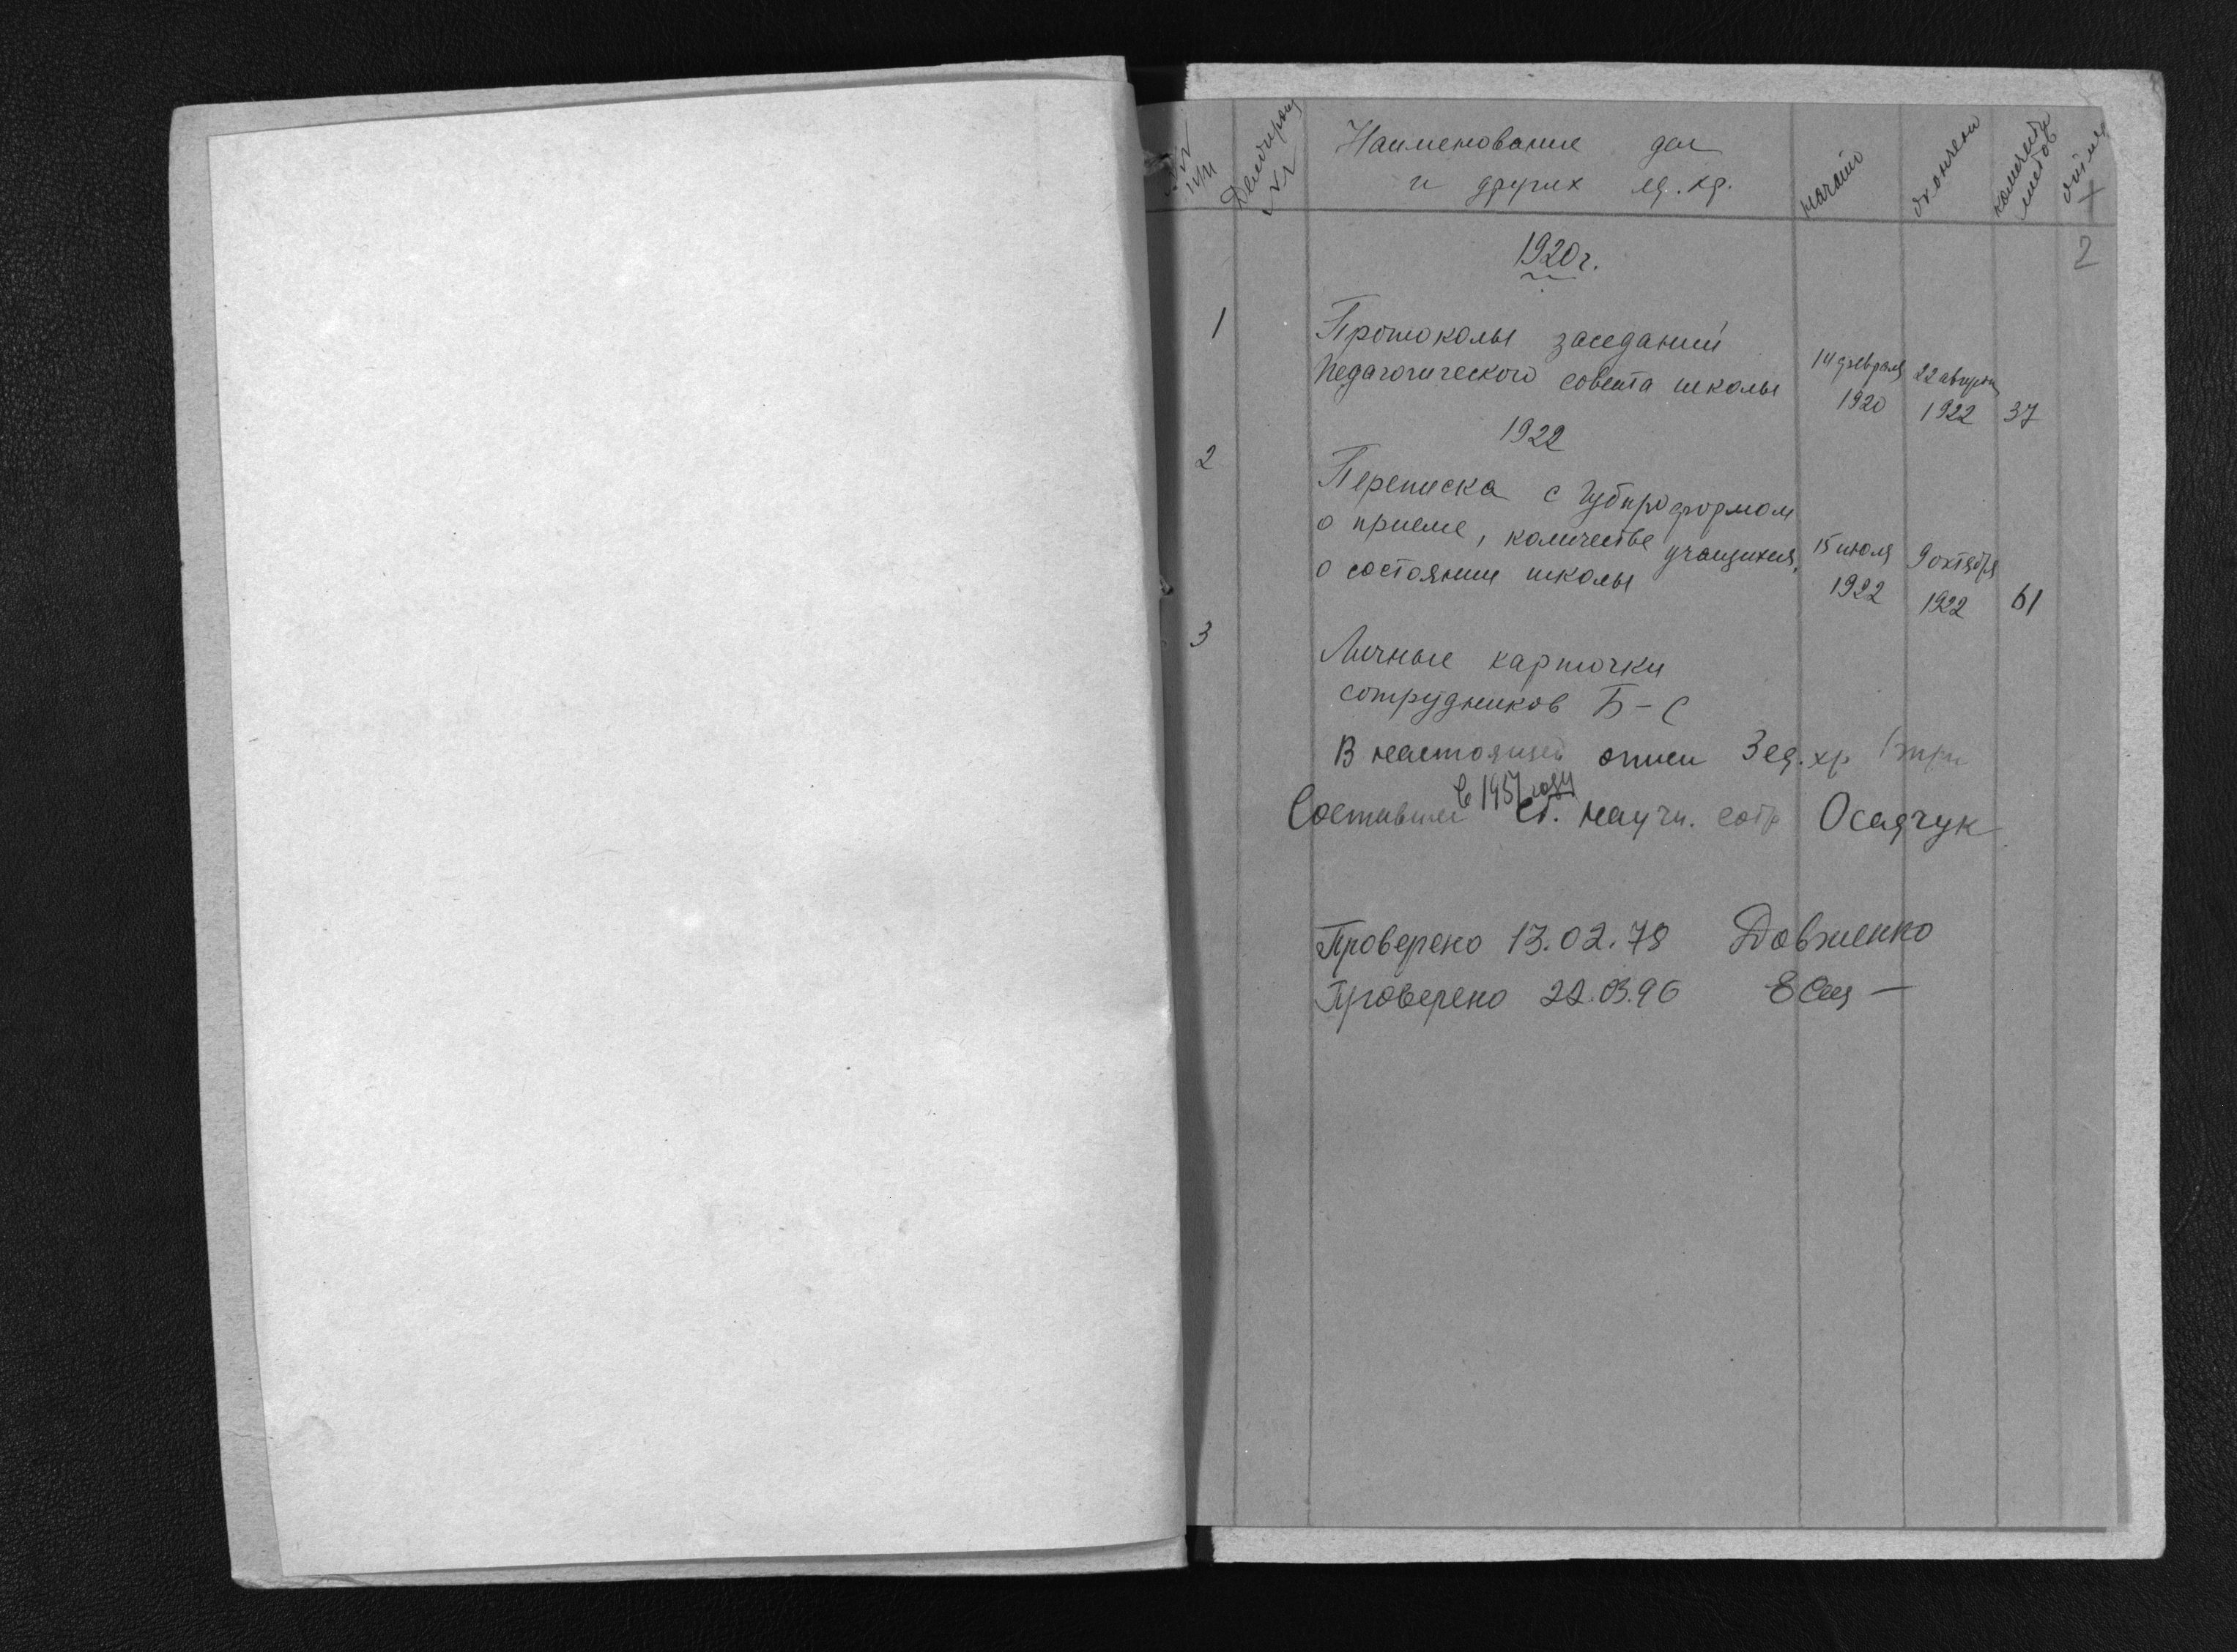 №№ п/п
Делопроизв. №№
Наименование дел
и других ед. хр.
начало
окончен
количеств листов
2
1920 г.
1
Протоколы заседаний
педагогического совета школы
14 февраля 1920
22 августа 1922
37
1922
2
Переписка с Губпроформом
о приеме, количестве учащихся,
о состоянии школы
15 июля 1922
9 октября 1922
61
3
Личные карточки
сотрудников Б-С
В настоящей описи 3 ед. хр. (три
в 1951 году
Составил Ст. научн. сотр Осадчук
Проверено 13.02.78 Довженко
Проверено 22.03.96